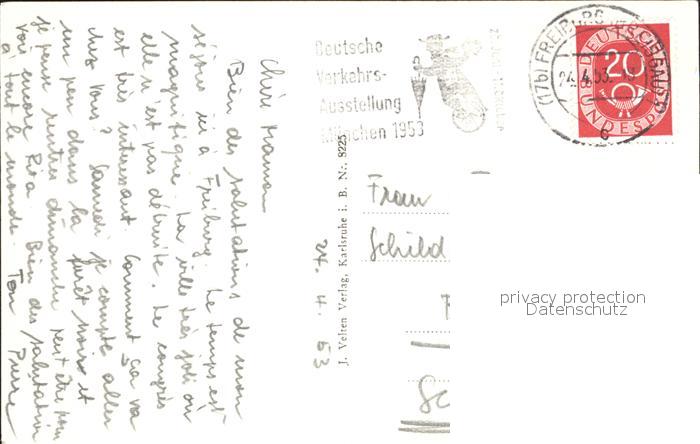 Chère Maman
Bien des salutations de mon
séjour ici à Freiburg. Le temps est
magnifique. La ville très joli où
elle n'est pas détruite. Le congrès
est très intéressant. Comment ça va
chez vous? Samedi je compte aller
un peu dans la forêt noire et
je pense rentrer dimanche peut être pour
voir encore Rita. Bien des salutations
à tout le monde. Ton
Pierre
24. 4. 53
J. Velten Verlag, Karlsruhe i. B. Nr. 8225
Deutsche
Verkehrs-
Ausstellung
München 1953
(17b) FREIBURG
24.4.53
c
DEUTSCHE
BUNDESPOST
20
Frau
Schild
privacy protection
Datenschutz